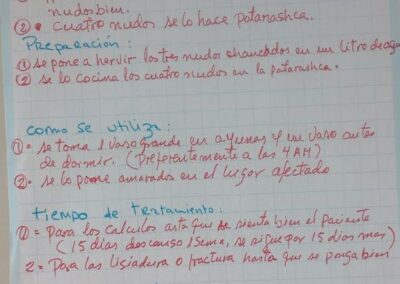 nudos bien.
② • cuatro nudos se lo hace patarashca.
Preparación:
① se pone a hervir los tres nudos chancados en un litro de agua
② se lo cocina los cuatro nudos en la patarashca.
como se utiliza:
① = se toma 1 vaso grande en ayunas y un vaso antes
de dormir. (Preferentemente a las 4 AM)
②. se lo pone amarados en el lugar afectado
tiempo de tratamiento:
① = Para los calculos asta que se sienta bien el paciente
(15 dias descanso 1 sema, se sigue por 15 dias mas)
2 = Para las lisiadura o fractura hasta que se ponga bien